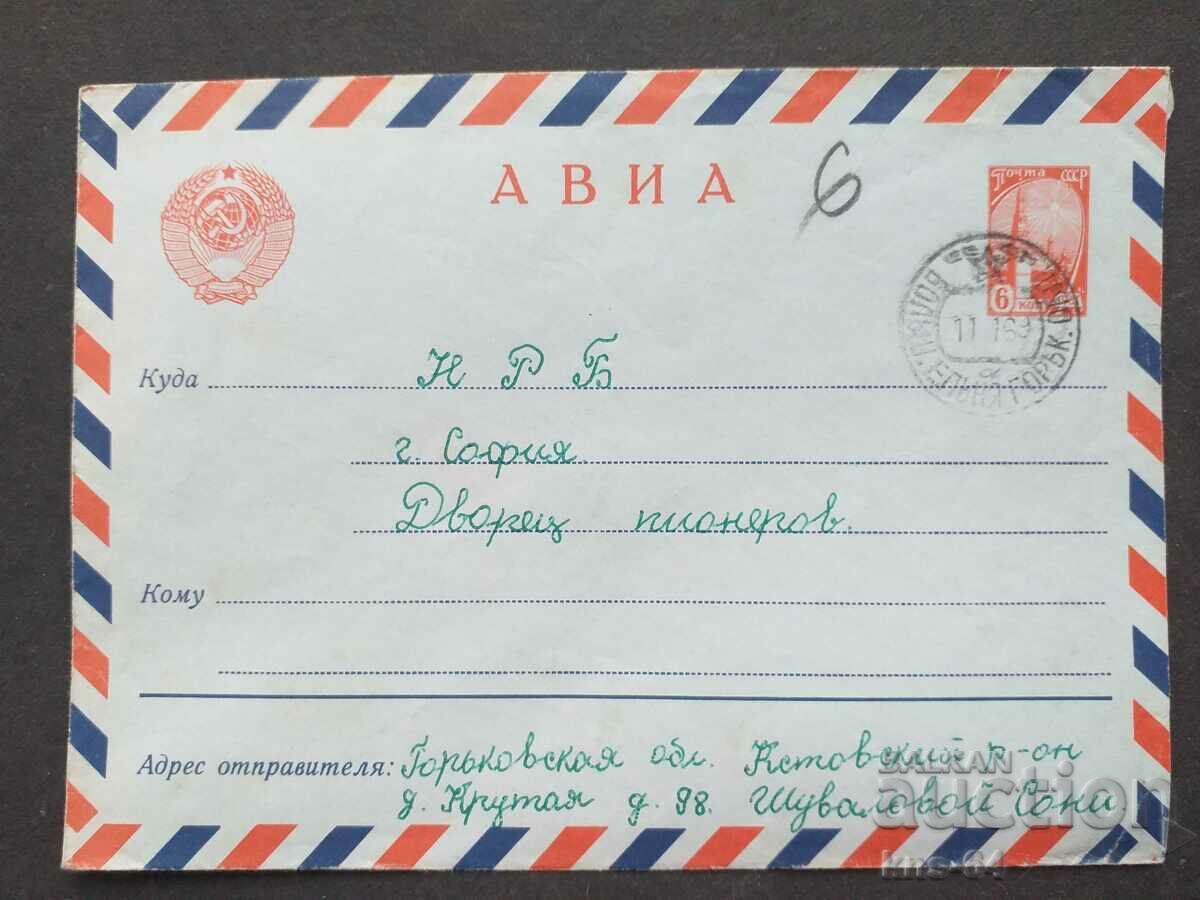 АВИА
6
Почта СССР
6 коп
11 1 69
Куда Н Р Б
г. София
Дворец пионеров.
Кому
Адрес отправителя: Горьковская обл. Кстовский р-он
д. Крутая д. 98. Шуваловой Сони.
BALKAN
auction
kns-64